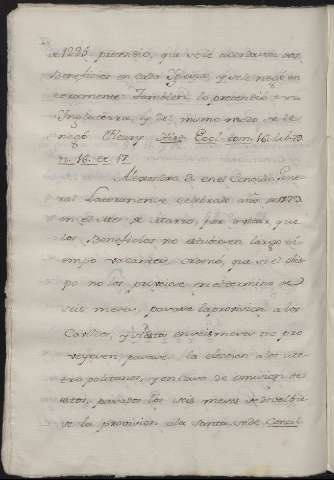 1225 pretendio, que se le acordaran dos
Beneficios en cada Iglesia, y se le negò en
teramente. Tambien lo pretendiò en
Inglaterra, y del mismo modo se le
negò. Fleury Hist. Ecl. tom. 16. lib. 79
n. 16. et 17.
Alexandro 3. en el Concilio Gene
ral Lateranense celebrado año de 1179
en el mes de Marzo, por evitar que
los Beneficios no estubiesen largo ti
empo vacantes, ordenò, que si el obis
po no los proveìe en el termino de
seis meses, pasase la provision a los
Cavildos, y si estos en seis meses no pro
veyesen pasase la eleccion a los Me
tropolitanos, y en caso de omision de
estos, pasados los seis meses se devolbie
se la provision a la Santa Sede. Concil